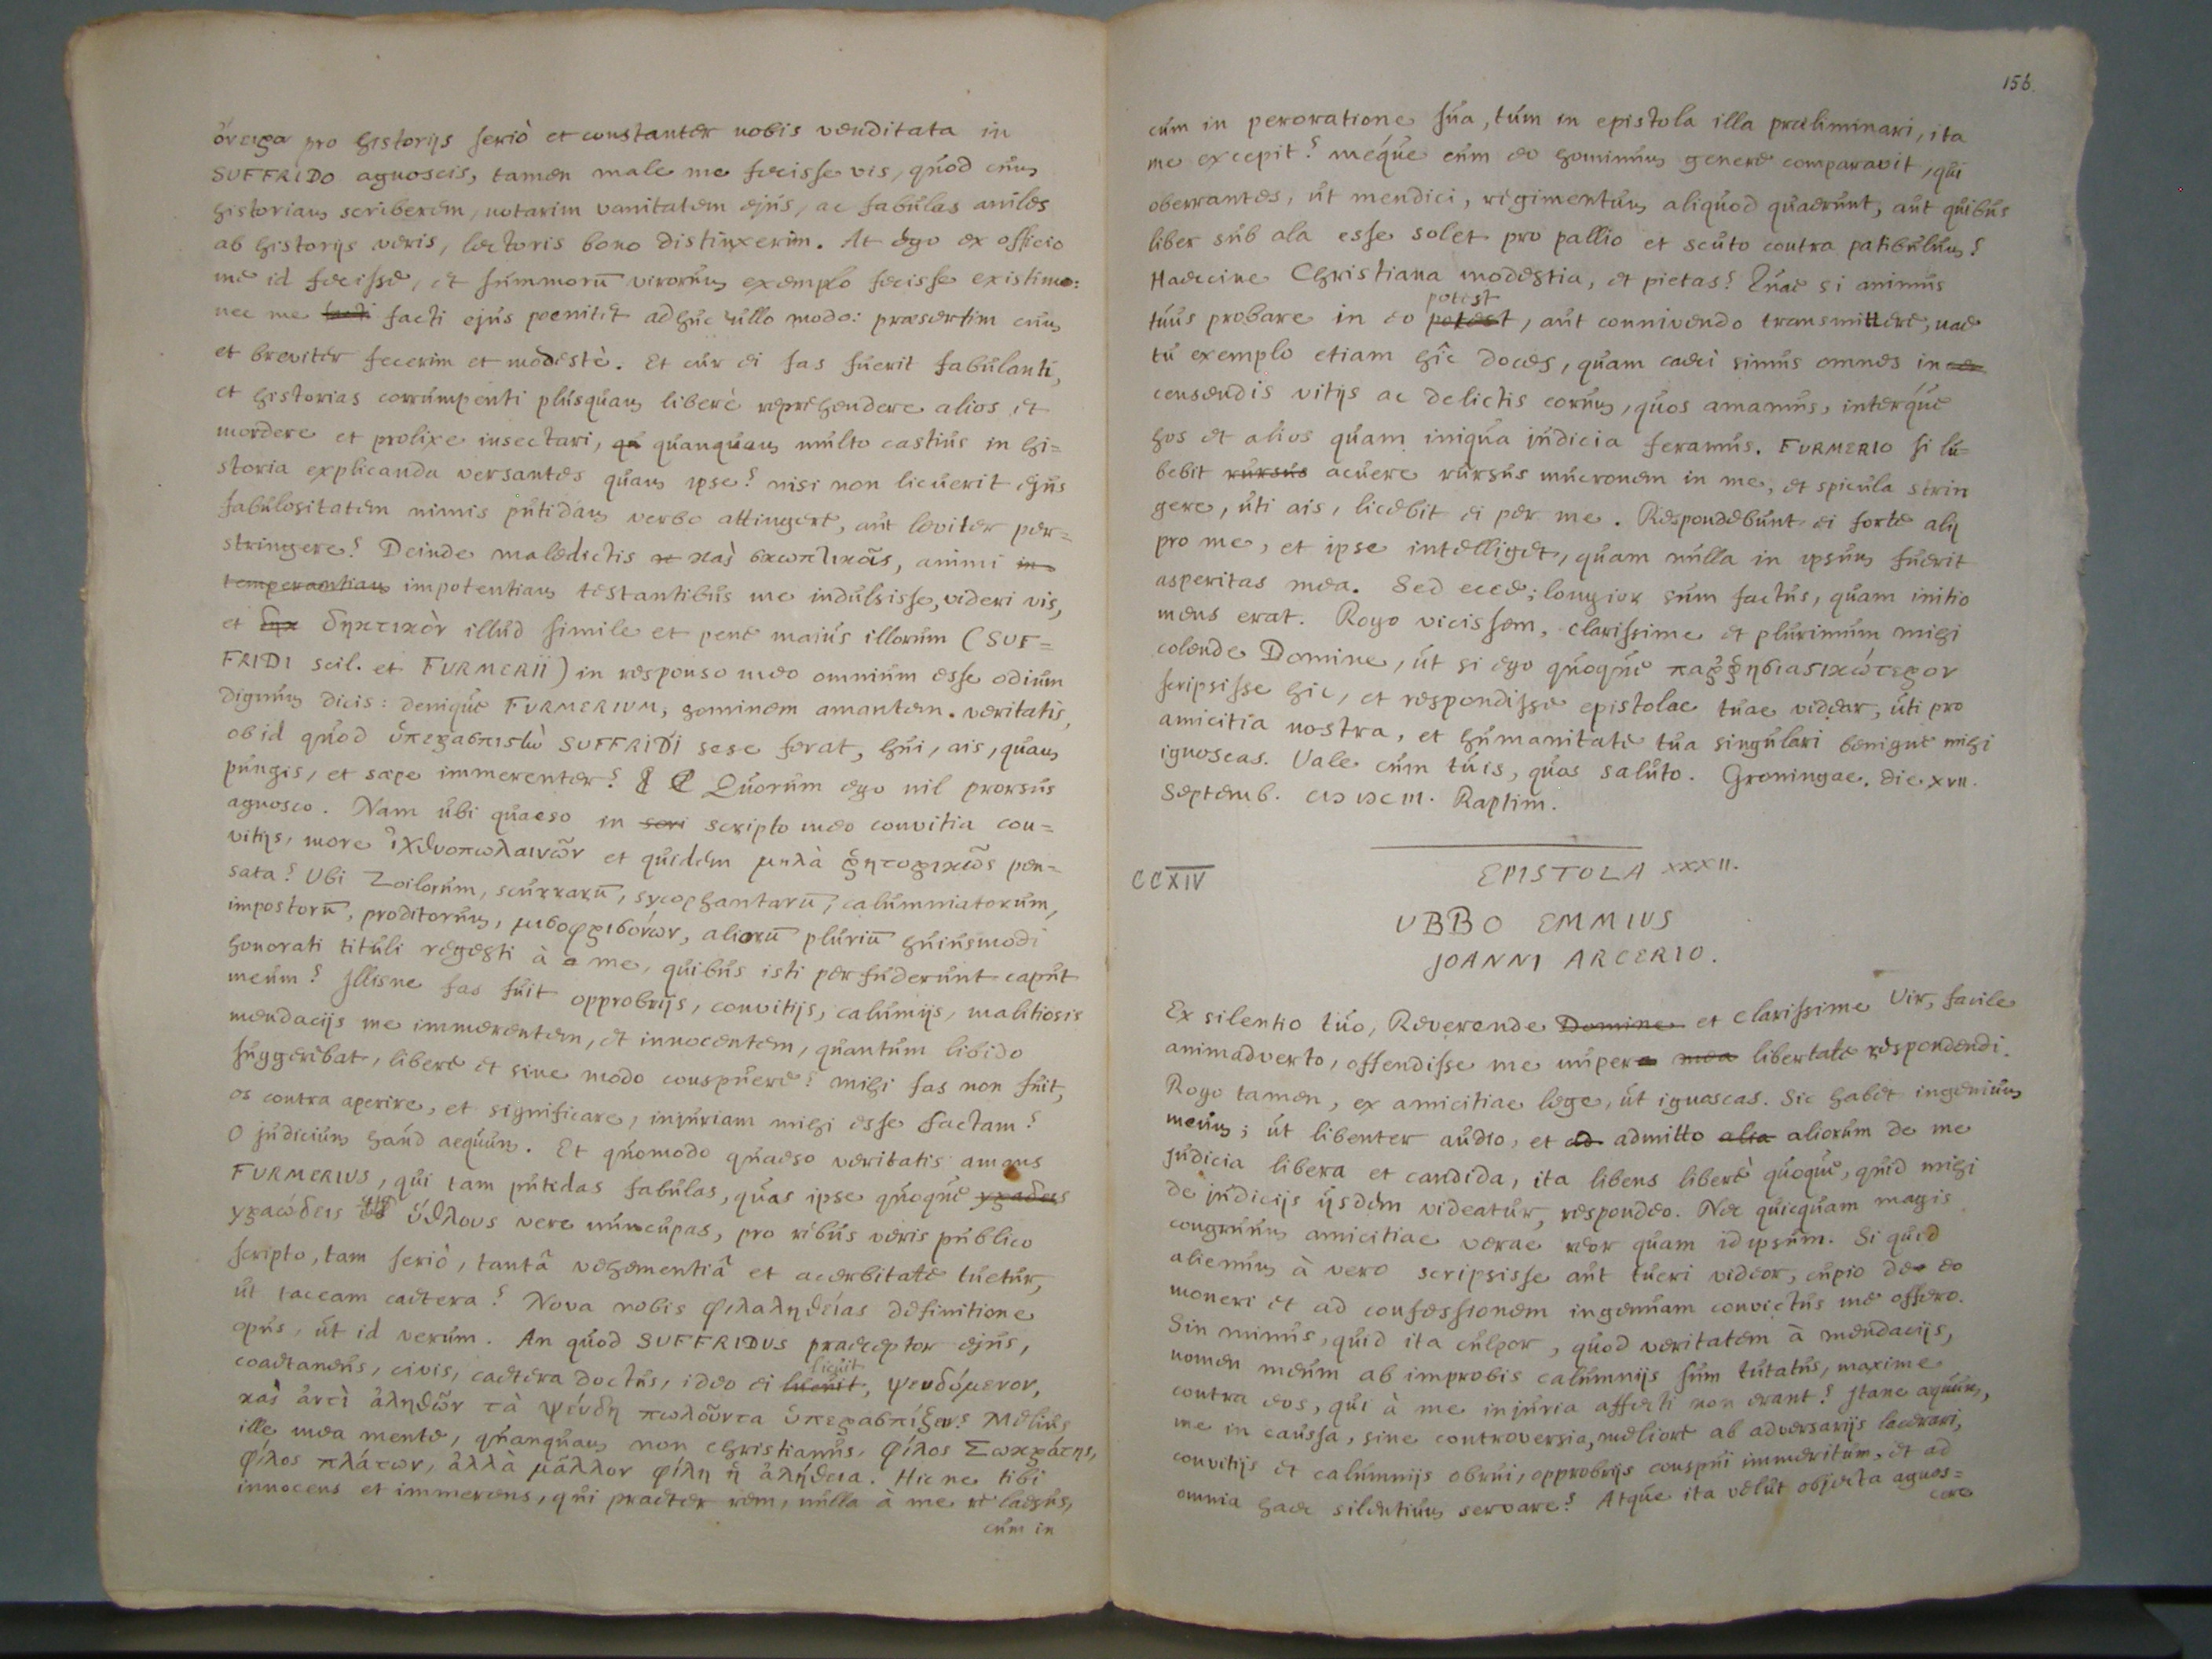 ὄνειρα pro historijs seriò et constanter nobis venditata in
SUFFRIDO agnoscis, tamen male me fecisse vis, quod cum
historiam scriberem, notarim vanitatem ejus, ac fabulas aniles
ab historijs veris, lectoris bono distinxerim. At ego ex officio
me id fecisse, et summorū virorum exemplo fecisse existimo:
nec me facti ejus poenitet adhuc ullo modo: praesertim cum
et breviter fecerim et modestè. Et cur ei fas fuerit fabulanti,
et historias corrumpenti plusquam liberè reprehendere alios et
mordere et prolixe insectari, qu quanquam multo castius in hi=
storia explicanda versantes quam ipse? nisi non licuerit ejus
fabulositatem nimis putidam verbo attingere, aut leviter per=
stringere? Deinde maledictis καὶ σκωπτικῶς, animi in
temperantiam impotentiam testantibus me indulsisse, videri vis,
et δηκ δηκτικὸν illud simile et pene maius illorum (SUF=
FRIDI scil. et FURMERII) in responso meo omnium esse odium
dignum dicis: denique FURMERIUM, hominem amantem veritatis,
ob id quod ὑπερασπιστὴν SUFFRIDI sese ferat, hui, ais, quam
pungis, et saepe immerenter? Quorum ego nil prorsus
agnosco. Nam ubi quaeso in scri scripto meo convitia con=
vitijs, more ἰχθυοπωλαινῶν et quidem μηλὰ ῥητορικῶς pen=
sata? Ubi Zoilorum, scurrarū, sycophantarū, calumniatorum,
impostorū, proditorum, μισοφρισόνων, aliorū pluriū huiusmodi
honorati tituli regesti à a me, quibus isti perfuderunt caput
meum? Illisne fas fuit opprobrijs, convitijs, calumijs, malitiosis
mendacijs me immerentem, et innocentem, quantum libido
suggeribat, libere et sine modo conspuere? mihi fas non fuit,
os contra aperire, et significare, injuriam mihi esse factam?
O judicium haud aequum. Et quomodo quaeso veritatis amans
FURMERIUS, qui tam putidas fabulas, quas ipse quoque γραωδεις
γραώδεις ὕθλους vere nuncupas, pro rebus veris publico
scripto, tam seriò, tantâ vehementiâ et acerbitate tuetur,
ut taceam caetera? Nova nobis φιλαληθείας definitione
opus, ut id verum. An quod SUFFRIDUS praeceptor ejus,
coaetaneus, civis, caetera doctus, ideo ei licuit licuit, ψευδόμενον,
καὶ ἀντὶ ἀληθῶν τὰ ψεύδη πωλοῦντα ὑπερασπίζειν? Melius
ille mea mente, quanquam non christianus, φίλος Σωκράτης,
φίλος πλάτων, ἀλλὰ μᾶλλον φίλη ἡ ἀλήθεια. Hicne tibi
innocens et immerens, qui praeter rem, nulla à me re laesus,
cum in
156.
cum in peroratione sua, tum in epistola illa praeliminari, ita
me excepit? méque cum eo hominum genere comparavit, qui
oberrantes, ut mendici, regimentum aliquod quaerunt, aut quibus
liber sub ala esse solet pro pallio et scuto contra patibulum?
Haeccine Christiana modestia, et pietas? Quae si animus
tuus probare in eo potest potest, aut connivendo transmittere, nae
tu exemplo etiam hîc doces, quam caeci simus omnes in
censendis vitijs ac delictis eorum, quos amamus, interque
hos et alios quam iniqua judicia feramus. FURMERIO si lu=
bebit rursus acuere rursus mucronem in me, et spicula strin
gere, uti ais, licebit ei per me. Respondebunt ei forte alij
pro me, et ipse intelliget, quam nulla in ipsum fuerit
asperitas mea. Sed ecce; longior sum factus, quam initio
mens erat. Rogo vicissem, clarissime et plurimum mihi
colende Domine, ut si ego quoque παῤῥησιαστικώτερον
scripsisse hic, et respondisse epistolae tuae videar, uti pro
amicitia nostra, et humanitate tua singulari benigne mihi
ignoscas. Vale cum tuis, quos saluto. Groningae, die XVII.
Septemb. CIↃ IↃC III. Raptim.
CCXIV
EPISTOLA XXXII.
UBBO EMMIUS
JOANNI ARCERIO.
Ex silentio tuo, Reverende Domine et clarissime Vir, facile
animadverto, offendisse me nuper mea libertate respondendi.
Rogo tamen, ex amicitiae lege, ut ignoscas. Sic habet ingenium
meum; ut libenter audio, et ad admitto alia aliorum de me
judicia libera et candida, ita libens liberè quoque, quid mihi
de judicijs ijsdem videatur, respondeo. Nec quicquam magis
congruum amicitiae verae reor quam id ipsum. Si quid
alienum à vero scripsisse aut tueri videor, cupio de eo
moneri et ad confessionem ingenuam convictus me offero.
Sin minus, quid ita culpor, quod veritatem à mendacijs,
nomen meum ab improbis calumnijs sum tutatus, maxime
contra eos, qui à me injuria affecti non erant? Itane aequum,
me in caussa, sine controversia, meliore ab adversarijs lacerari,
convitijs et calumnijs obrui, opprobrijs conspui immeritum, et ad
omnia haec silentium servare? Atque ita velut objecta agnos=
cere